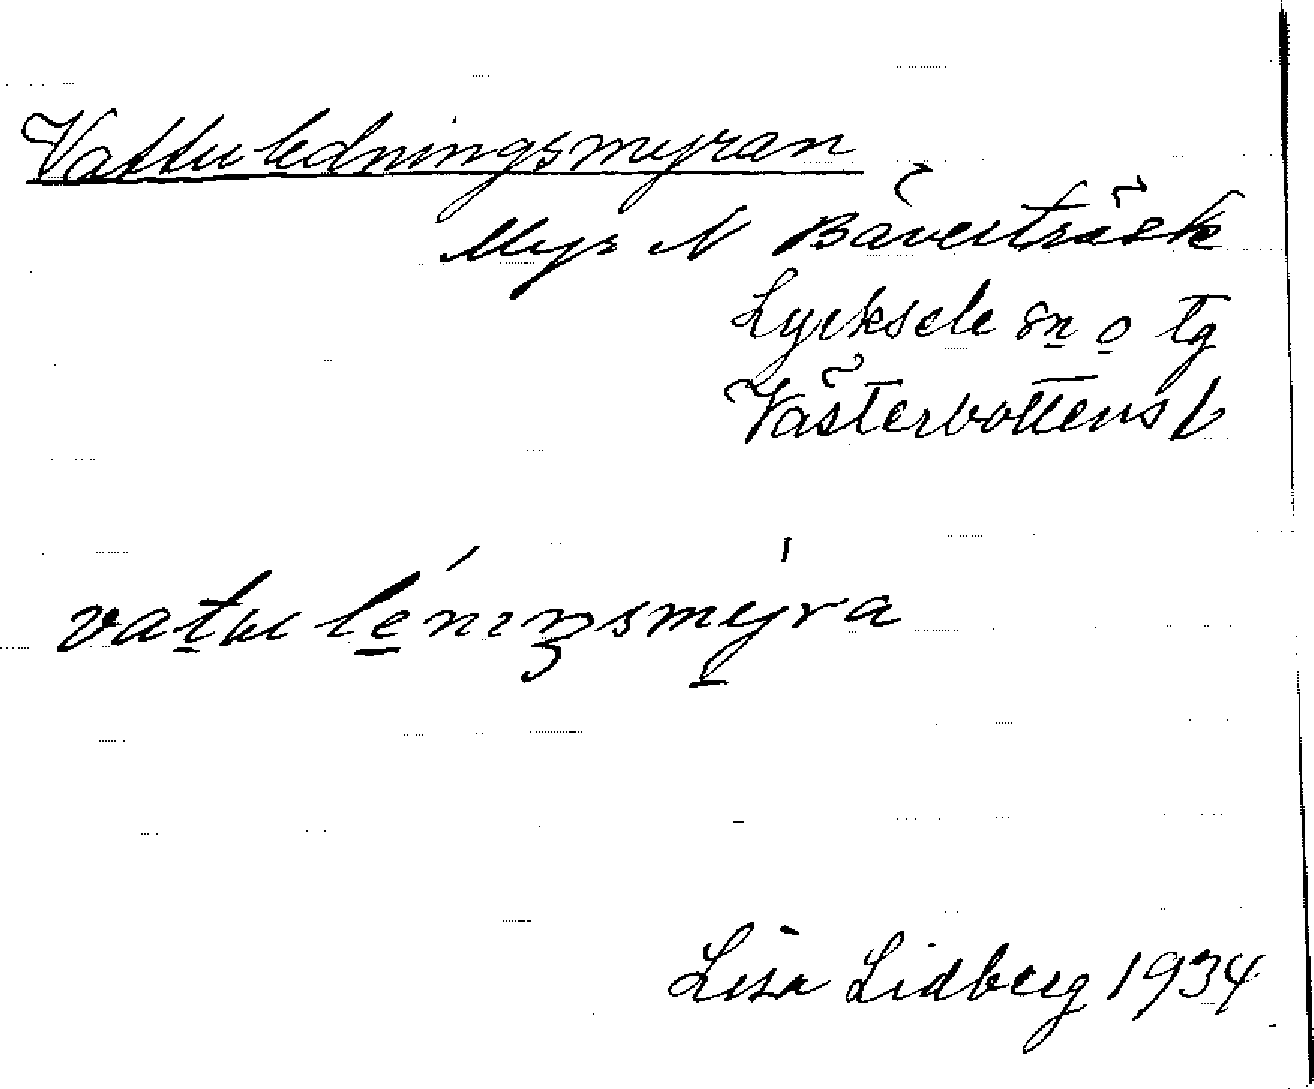 Vattuledningsmyran
Myr N Bäverträsk
Lycksele sn o tg
Västerbottens l
vatuléniŋsmy̍ra
Lisa Lidberg 1934